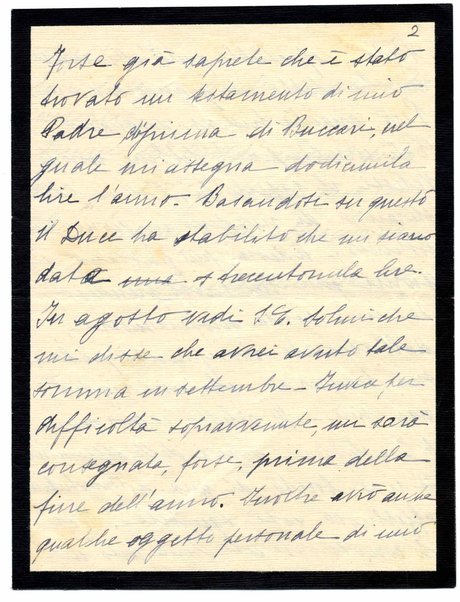 2
Forse già sapete che è stato
trovato un testamento di mio
Padre, prima di Buccari, nel
quale mi assegna dodicimila
lire l'anno. Basandosi su questo
il Duce ha stabilito che mi siano
data una trecentomila lire.
In agosto vidi S.E. Solmi che
mi disse che avrei avuto tale
somma in settembre. Invece, per
difficoltà sopravvenute, mi sarà
consegnata, forse, prima della
fine dell'anno. Inoltre avrò anche
qualche oggetto personale di mio